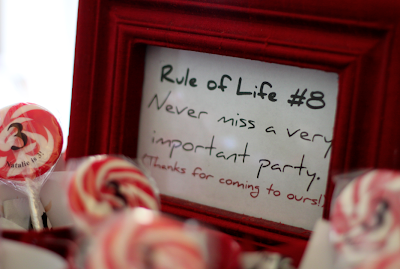 Rule of Life #8
Never miss a very
important party.
(Thanks for coming to ours!)
3
Natalie is
3